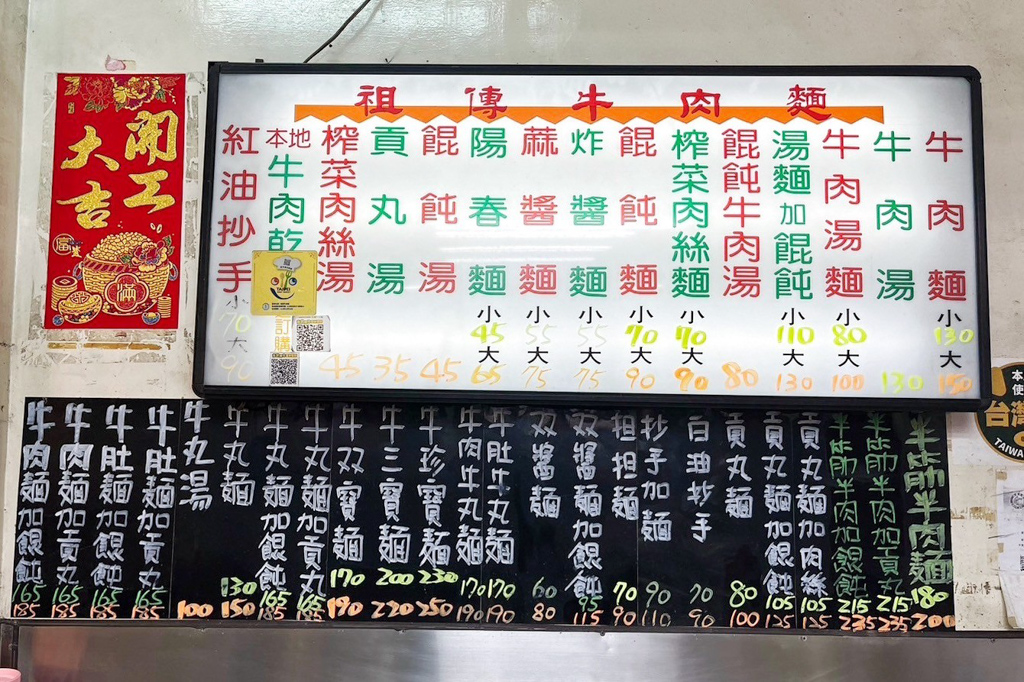 祖傳牛肉麵
牛肉麵 小 130 大 150
牛肉湯 130
牛肉湯麵 小 80 大 100
湯麵加餛飩 小 110 大 130
餛飩牛肉湯 80
榨菜肉絲麵 小 70 大 90
餛飩麵 小 70 大 90
炸醬麵 小 55 大 75
蔴醬麵 小 55 大 75
陽春麵 小 45 大 65
餛飩湯 45
貢丸湯 35
榨菜肉絲湯 45
本地牛肉乾
訂購
紅油抄手 小 70 大 90
開工
大吉
滿
半筋半肉麵 180 200
半筋半肉加貢丸 215 235
半筋半肉加餛飩 215 235
貢丸麵加肉絲 105 125
貢丸麵加餛飩 105 125
貢丸麵 80 100
白油抄手 70 90
抄手加麵 90 110
担担麵 70 90
双醬麵加餛飩 95 115
双醬麵 60 80
牛肚牛丸麵 170 190
牛肉牛丸麵 170 190
牛珍寶麵 230 250
牛三寶麵 200 220
牛双寶麵 170 190
牛丸麵加貢丸 165 185
牛丸麵加餛飩 165 185
牛丸麵 130 150
牛丸湯 100
牛肚麵加貢丸 165 185
牛肚麵加餛飩 165 185
牛肉麵加貢丸 165 185
牛肉麵加餛飩 165 185